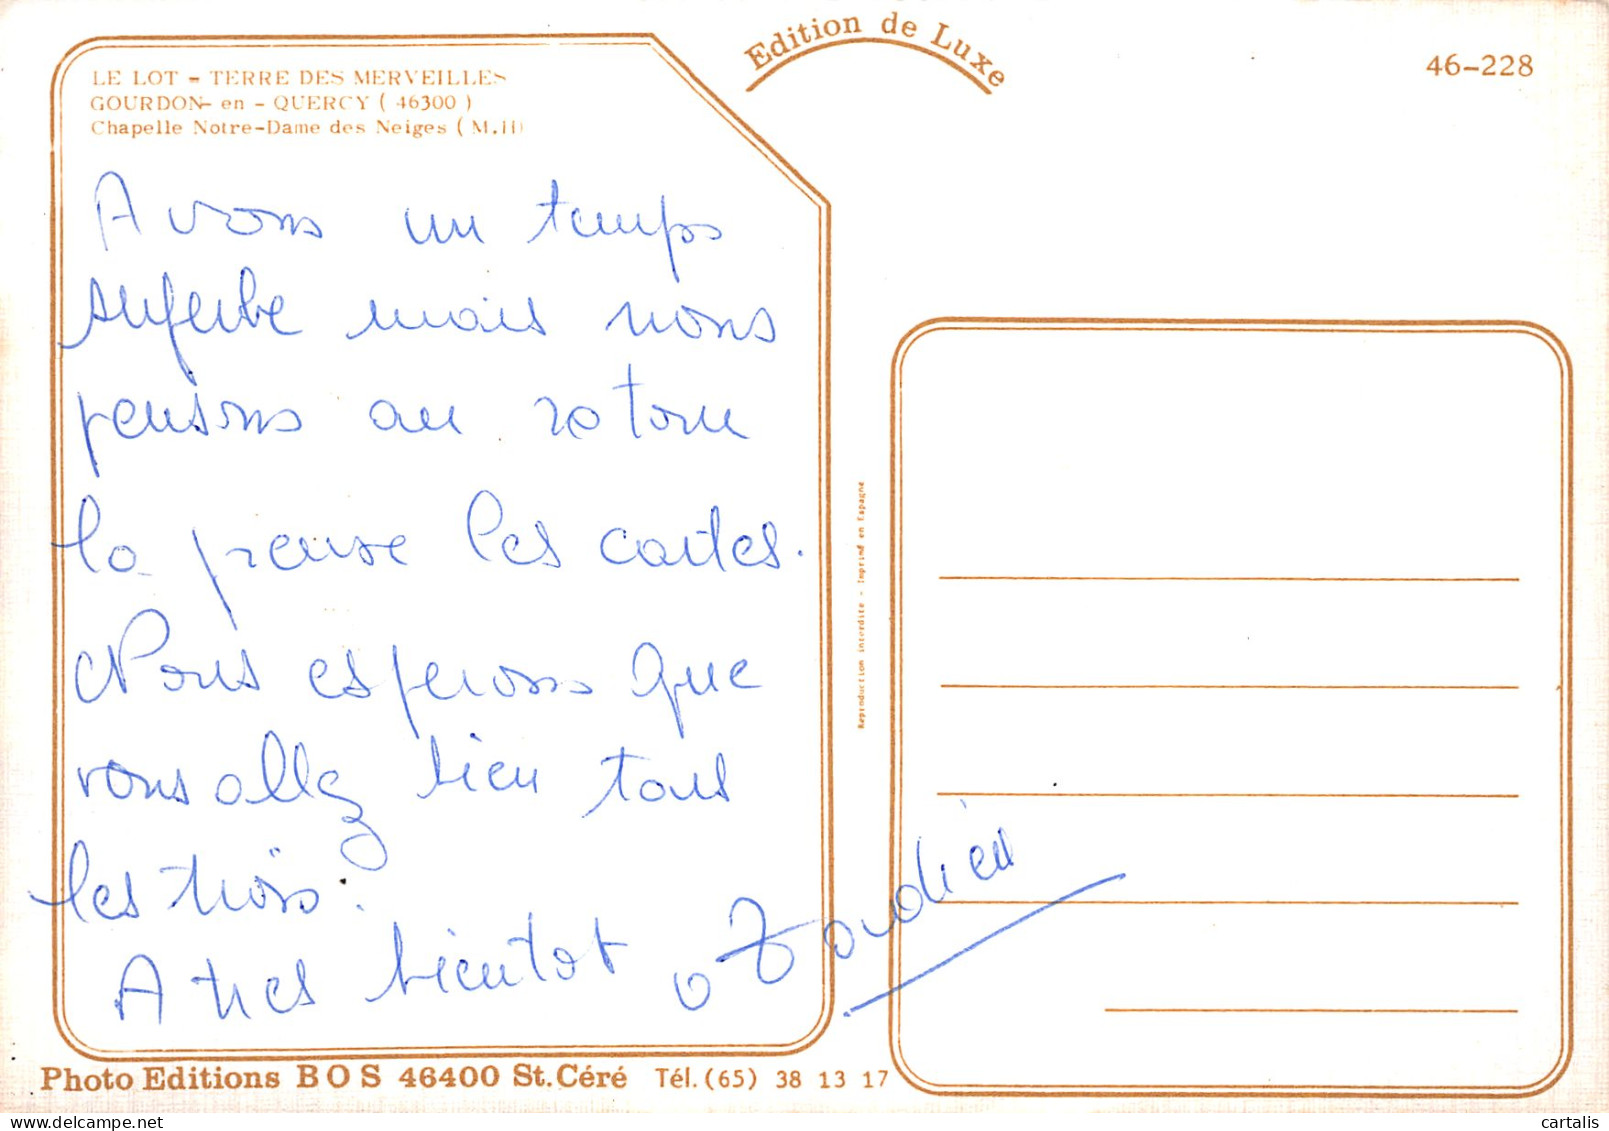 LE LOT - TERRE DES MERVEILLES
GOURDON- en - QUERCY ( 46300 )
Chapelle Notre-Dame des Neiges ( M.H)
Avons un temps
superbe mais nous
pensons au retour
la preuve les cartes.
Nous esperons que
vous allez bien tous
les trois.
A tres bientot
Edition de Luxe
46-228
Reproduction interdite - Imprimé en Espagne
Photo Editions BOS 46400 St.Céré Tél.(65) 38 13 17
cartalis